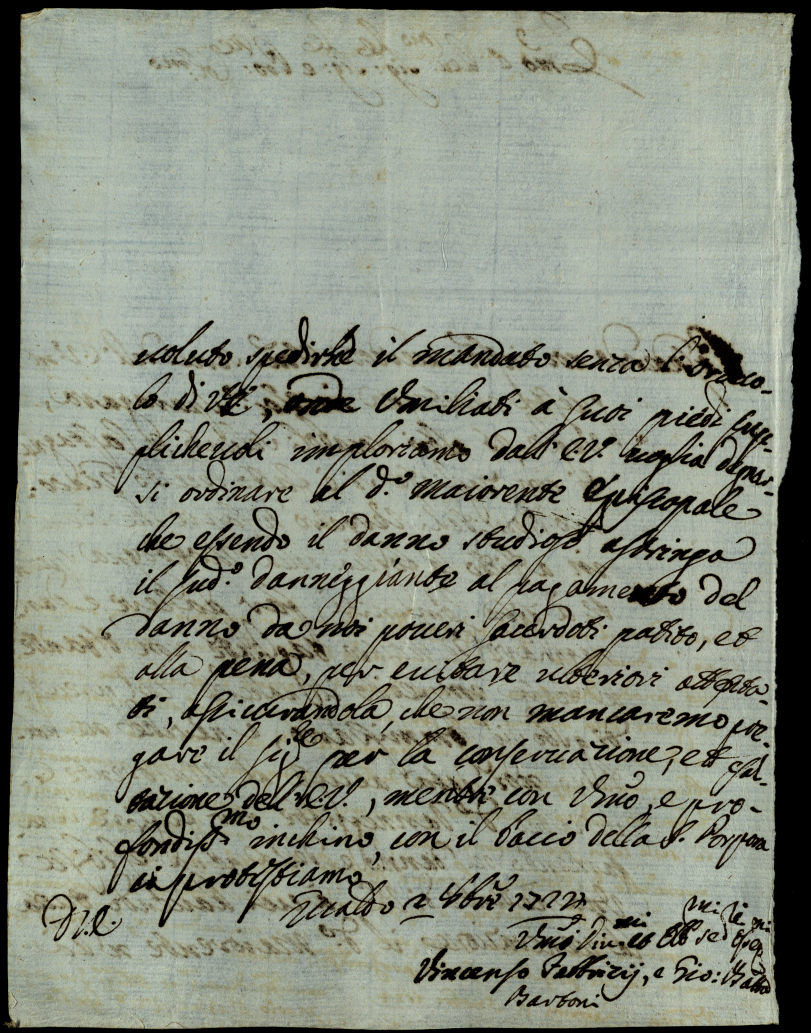 uoluto spedirle il mandato senza l'oraco-
lo di V.E., onde Umiliati à Suoi piedi sup-
plicheuoli imploriamo dall'E.V. uoglia degnar-
si ordinare al d.º maiorente Episcopale
che essendo il danno studioso astringa
il sud.º danneggiante al pagamento del
danno da noi poueri Sacerdoti patito, et
alla pena, per euitare ulteriori attenta-
ti, assicurandola, che non mancaremo pre-
gare il Sig.re per la conseruatione, et esal-
tatione dell'E.V., mentre con Umo, e pro-
fondiss.mo inchino, con il bacio della S. Porpora
ci protestiamo
Gualdo 2 9bre
D.V.E.
Umi Diu.mi et Ob.mi Se
Vincenso Fabbricij, e Gio: Batta
Bartoni